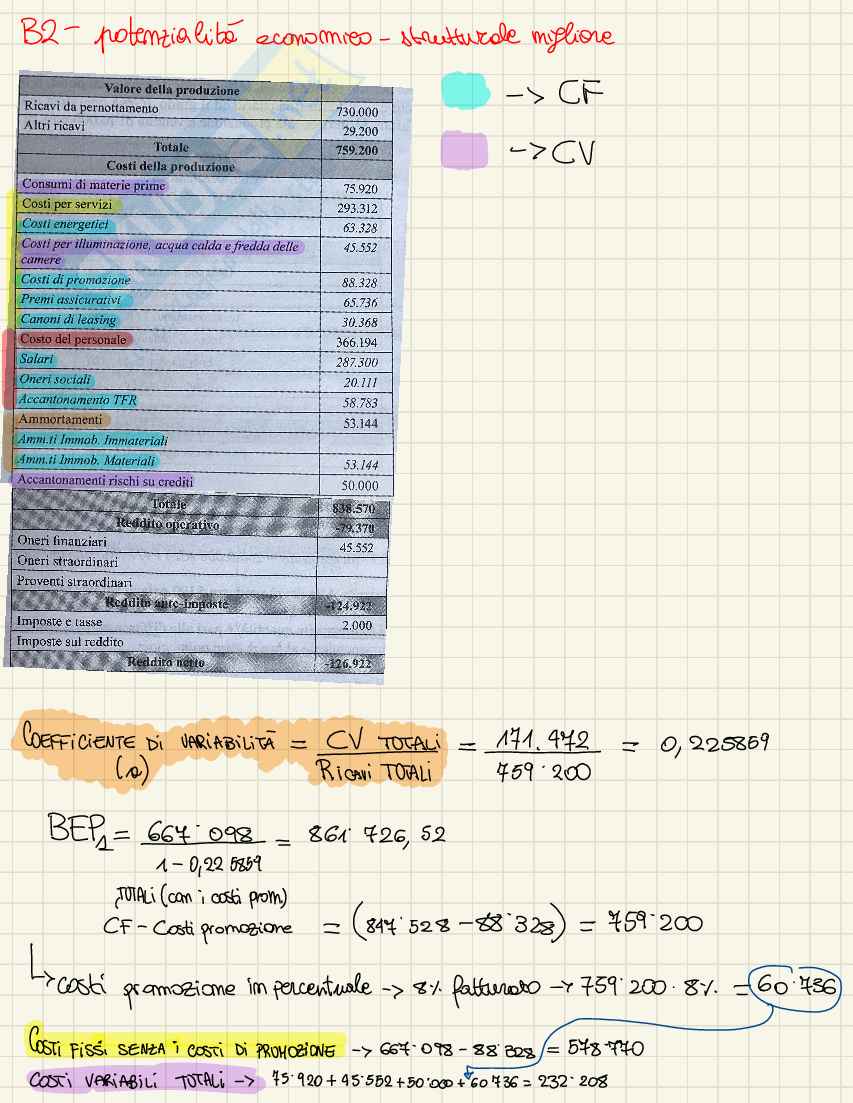 B2 - potenzialità economico - strutturale migliore
-> CF
-> CV
Valore della produzione
Ricavi da pernottamento 730.000
Altri ricavi 29.200
Totale 759.200
Costi della produzione
Consumi di materie prime 75.920
Costi per servizi 293.312
Costi energetici 63.328
Costi per illuminazione, acqua calda e fredda delle camere 45.552
Costi di promozione 88.328
Premi assicurativi 65.736
Canoni di leasing 30.368
Costo del personale 366.194
Salari 287.300
Oneri sociali 20.111
Accantonamento TFR 58.783
Ammortamenti 53.144
Amm.ti Immob. Immateriali
Amm.ti Immob. Materiali 53.144
Accantonamenti rischi su crediti 50.000
Totale 838.570
Reddito operativo -79.370
Oneri finanziari 45.552
Oneri straordinari
Proventi straordinari
Reddito ante-imposte -124.922
Imposte e tasse 2.000
Imposte sul reddito
Reddito netto -126.922
COEFFICIENTE DI VARIABILITÀ (a) = CV TOTALI / RICAVI TOTALI = 171.472 / 759.200 = 0,225859
BEP1 = 667.098 / 1-0,225859 = 861.726,52
TOTALI (con i costi prom)
CF - Costi promozione = (847.528 - 88.328) = 759.200
↳ costi promozione in percentuale -> 8% fatturato -> 759.200 . 8% = 60.736
COSTI FISSI SENZA i COSTI DI PROMOZIONE -> 667.098 - 88.328 = 578.770
COSTI VARIABILI TOTALI -> 75.920 + 45.552 + 50.000 + 60.736 = 232.208